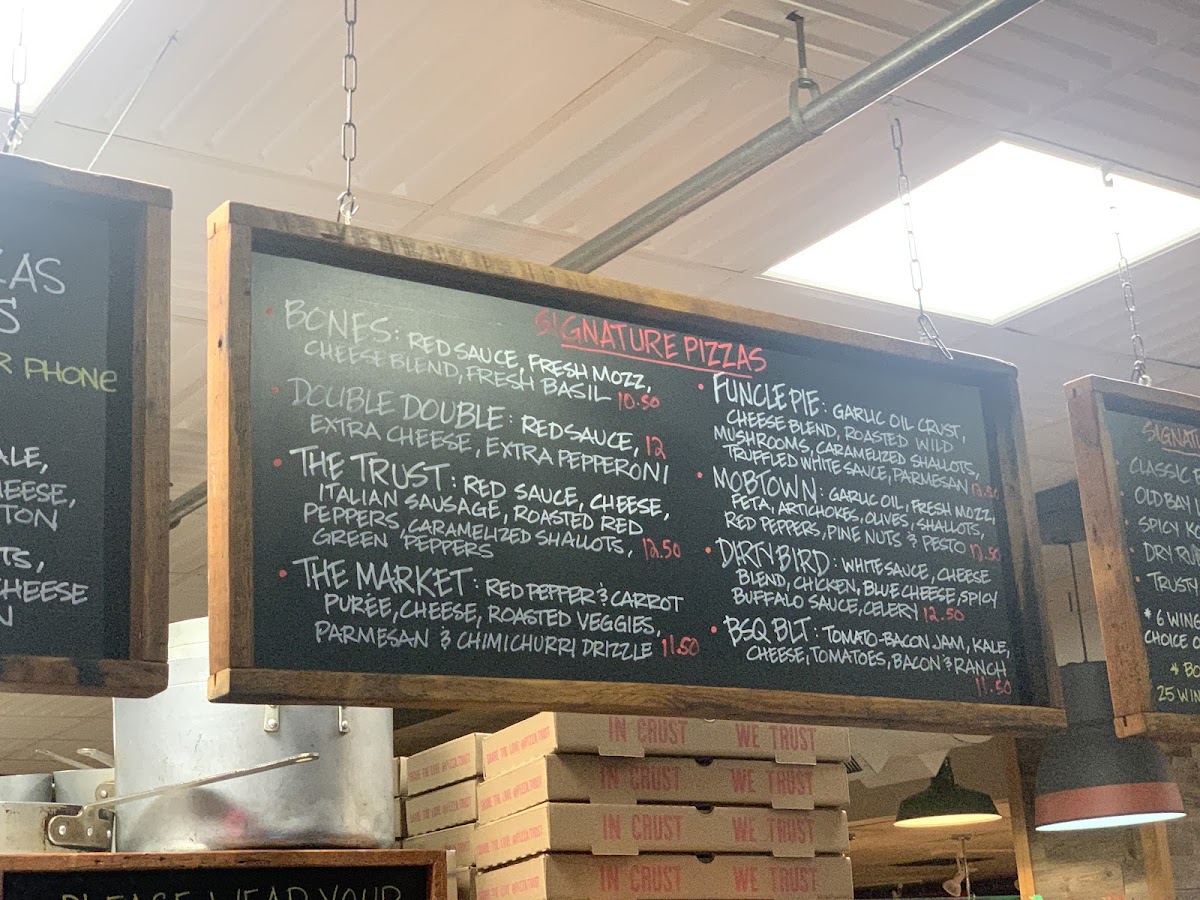 ZAS
S
R PHONE
ALE,
CHEESE,
TON
TS,
CHEESE
N
SIGNATURE PIZZAS
• BONES: RED SAUCE, FRESH MOZZ,
CHEESE BLEND, FRESH BASIL 10.50
• DOUBLE DOUBLE: RED SAUCE, 12
EXTRA CHEESE, EXTRA PEPPERONI
• THE TRUST: RED SAUCE, CHEESE,
ITALIAN SAUSAGE, ROASTED RED
PEPPERS, CARAMELIZED SHALLOTS, 12.50
GREEN PEPPERS
• THE MARKET: RED PEPPER & CARROT
PURÉE, CHEESE, ROASTED VEGGIES,
PARMESAN & CHIMICHURRI DRIZZLE 11.50
• FUNCLE PIE: GARLIC OIL CRUST,
CHEESE BLEND, ROASTED WILD
MUSHROOMS, CARAMELIZED SHALLOTS,
TRUFFLED WHITE SAUCE, PARMESAN
• MOBTOWN: GARLIC OIL, FRESH MOZZ,
FETA, ARTICHOKES, OLIVES, SHALLOTS,
RED PEPPERS, PINE NUTS & PESTO
• DIRTY BIRD: WHITE SAUCE, CHEESE
BLEND, CHICKEN, BLUE CHEESE, SPICY
BUFFALO SAUCE, CELERY 12.50
• BSQ BLT: TOMATO-BACON JAM, KALE,
CHEESE, TOMATOES, BACON & RANCH
11.50
SIGNAT
• CLASSIC
• OLD BAY
• SPICY K
• DRY RU
• TRUST
* 6 WING
CHOICE O
& BO
25 WIN
IN CRUST WE TRUST
IN CRUST WE TRUST
IN CRUST WE TRUST
IN CRUST WE TRUST
PLEASE WEAR YOUR